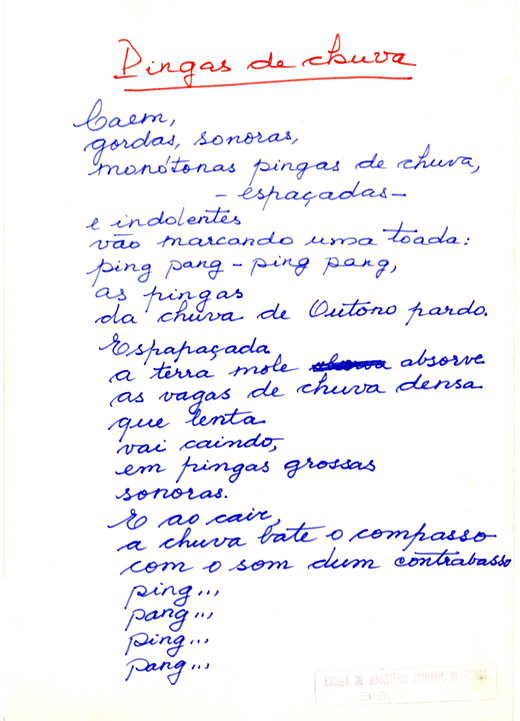 Pingas de chuva
Caem,
gordas, sonoras,
monótonas pingas de chuva,
- espaçadas -
e indolentes
vão marcando uma toada:
ping pang - ping pang,
as pingas
da chuva de Outono pardo.
Espapaçada
a terra mole absorve
as vagas de chuva densa
que lenta
vai caindo,
em pingas grossas
sonoras.
E ao cair,
a chuva bate o compasso
com o som dum contrabasso
ping...
pang...
ping...
pang...
ESCOLA DO MAGISTÉRIO PRIMÁRIO DE LISBOA